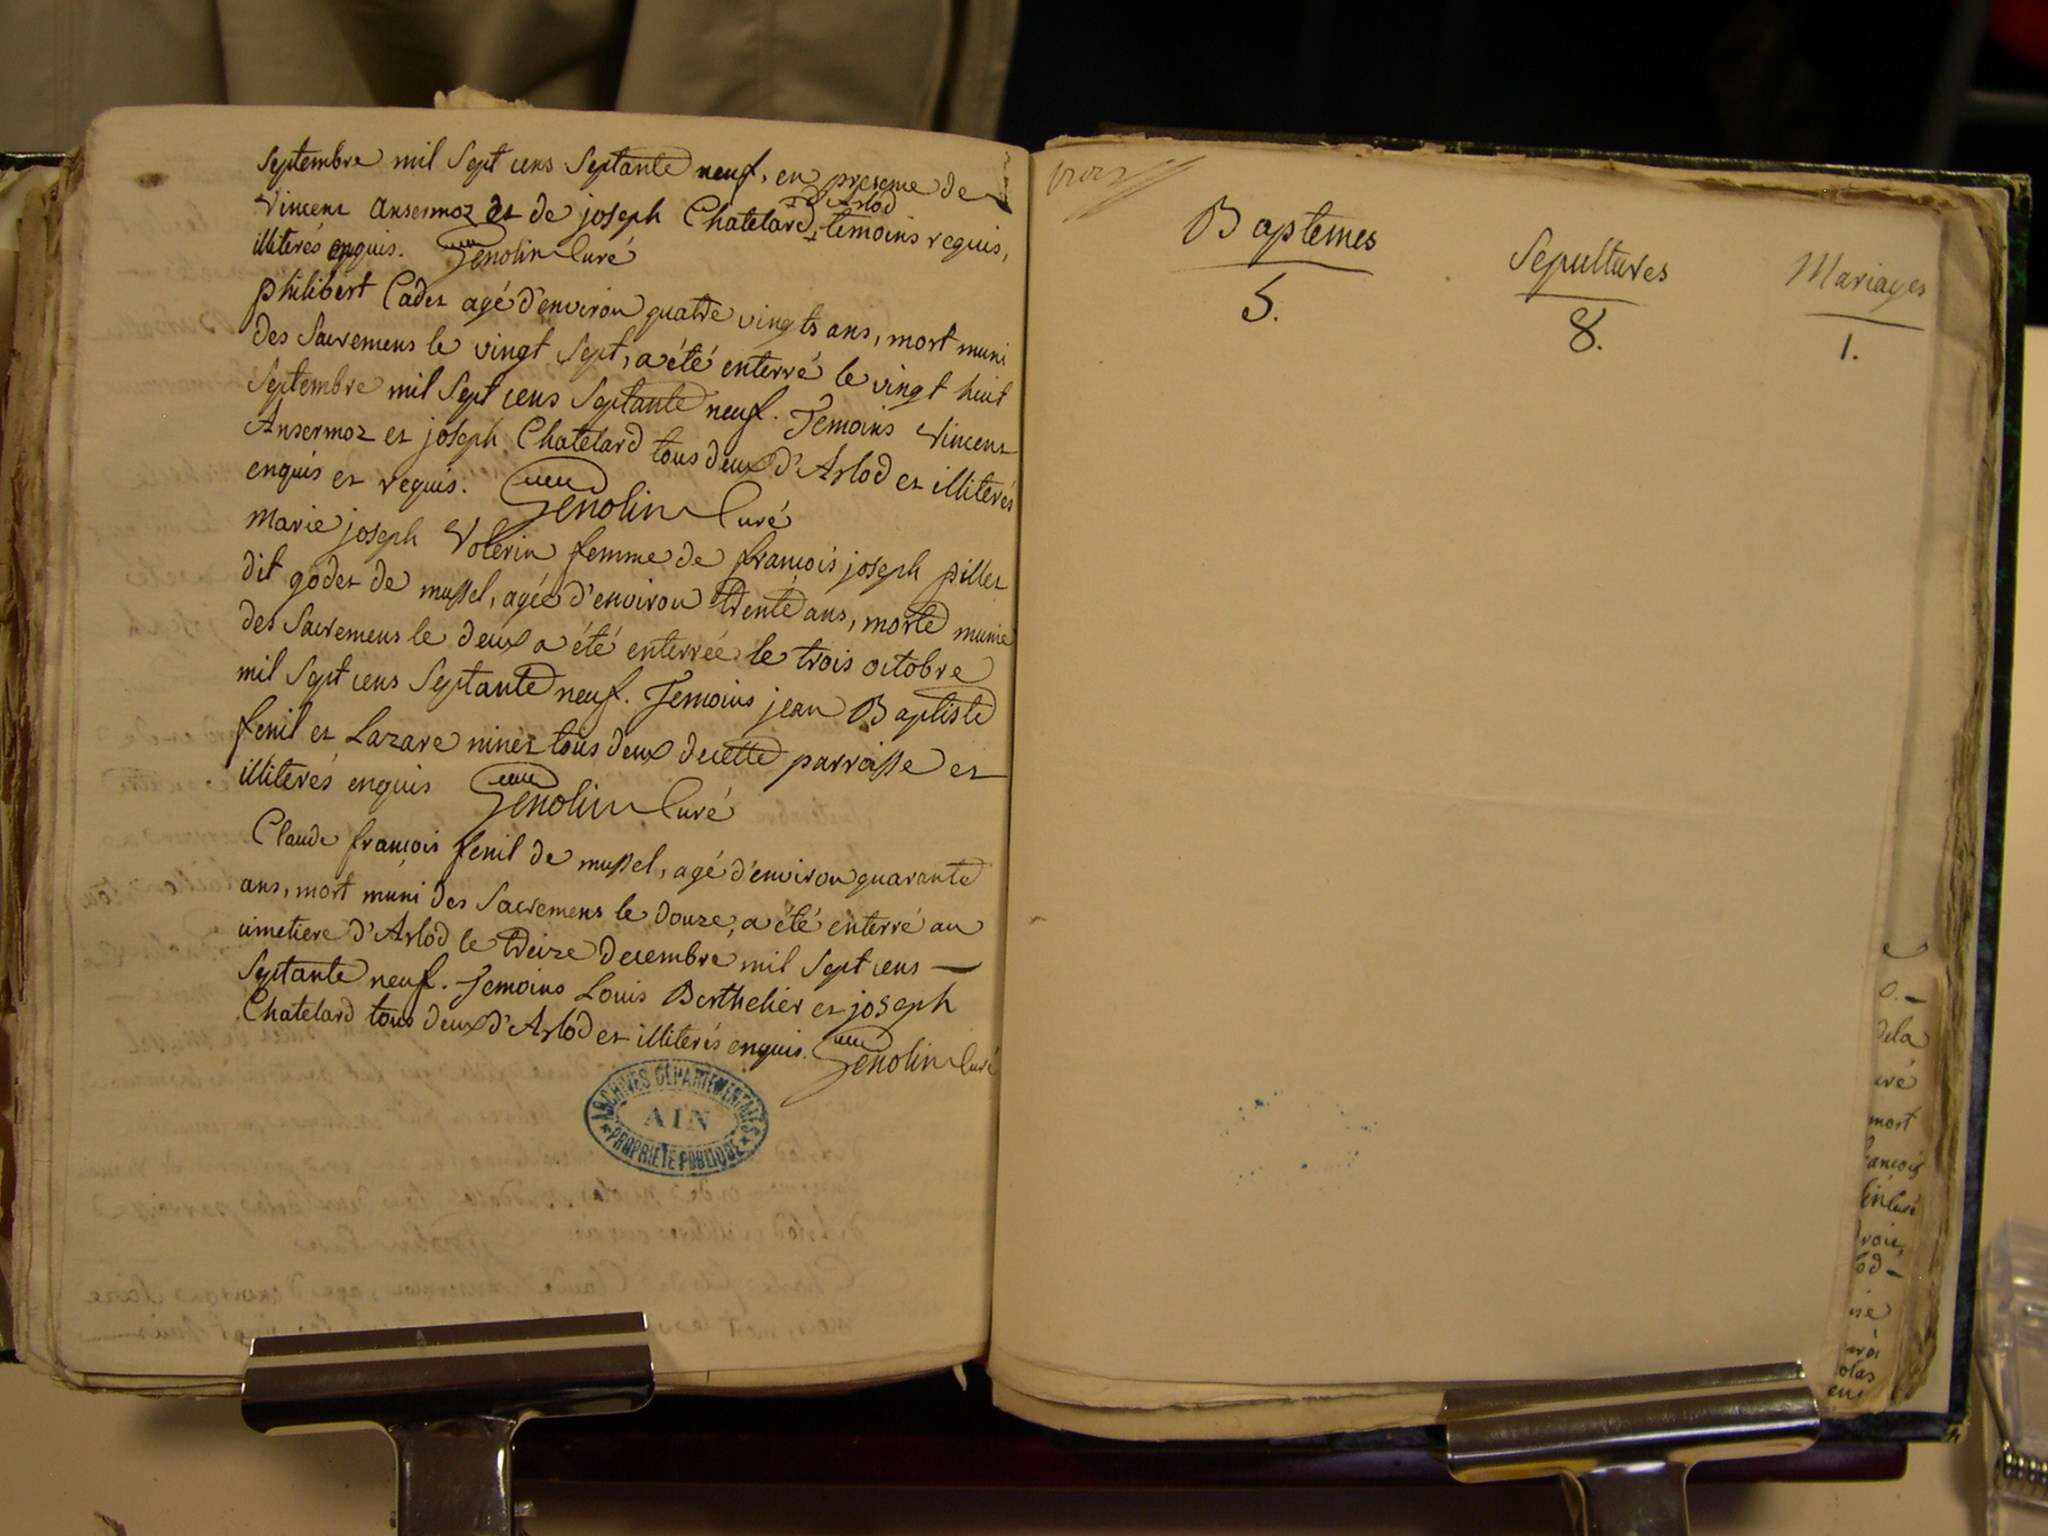 Septembre mil Sept cens Septante neuf, en presence de
Vincent Ansermoz et de joseph Chatelard + temoins requis,
+ d'Arlod
illiterés enquis. Genolin Curé
philibert Cadet agé d'environ quatre vingts ans, mort muni
des Sacremens le vingt Sept, a été enterré le vingt huit
Septembre mil Sept cens Septante neuf. Temoins Vincent
Ansermoz et joseph Chatelard tous deux d'Arlod et illiterés
enquis et requis. Genolin Curé
Marie joseph Volerin femme de françois joseph pillet
dit godet de mussel, agée d'environ trente ans, morte munie
des Sacremens le deux a été enterrée le trois octobre
mil Sept cens Septante neuf. Temoins jean Baptiste
fenil et Lazare ninet tous deux de cette parroisse et
illiterés enquis Genolin Curé
Claude françois fenil de mussel, agé d'environ quarante
ans, mort muni des Sacremens le douze, a été enterré au
cimetiere d'Arlod le treize decembre mil Sept cens —
Septante neuf. Temoins Louis Berthelier et joseph
Chatelard tous deux d'Arlod et illiterés enquis. Genolin Curé
ARCHIVES DÉPARTEMENTALES
AIN
PROPRIÉTÉ PUBLIQUE
Baptemes
5.
Sepultures
8.
Mariages
1.
dela
mort